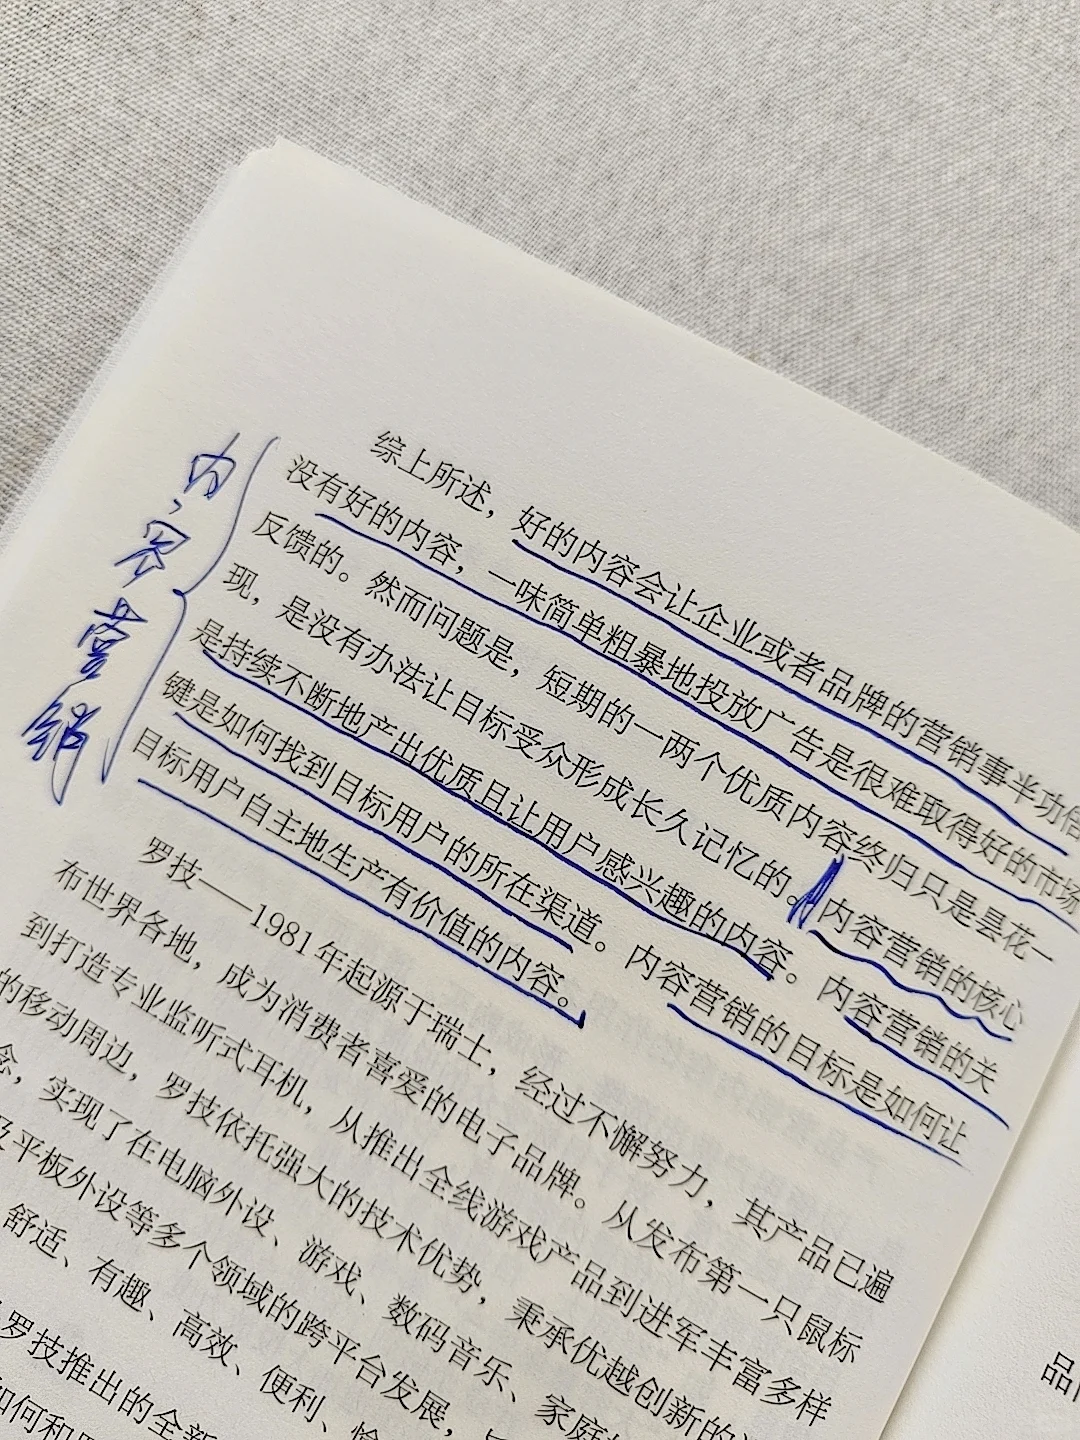 内容营销
综上所述，好的内容会让企业或者品牌的营销事半功倍
没有好的内容，一味简单粗暴地投放广告是很难取得好的市场
反馈的。然而问题是，短期的一两个优质内容终归只是昙花一
现，是没有办法让目标受众形成长久记忆的。内容营销的核心
是持续不断地产出优质且让用户感兴趣的内容。内容营销的关
键是如何找到目标用户的所在渠道。内容营销的目标是如何让
目标用户自主地生产有价值的内容。
罗技——1981年起源于瑞士，经过不懈努力，其产品已遍
布世界各地，成为消费者喜爱的电子品牌。从发布第一只鼠标
到打造专业监听式耳机，从推出全线游戏产品到进军丰富多样
的移动周边，罗技依托强大的技术优势，秉承优越创新的
念，实现了在电脑外设、游戏、数码音乐、家庭
及平板外设等多个领域的跨平台发展，
舒适、有趣、高效、便利、愉
罗技推出的全新
如何和
品